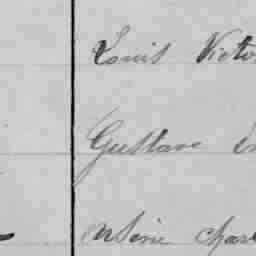 Louis Victo
Gustave
Arsène Char